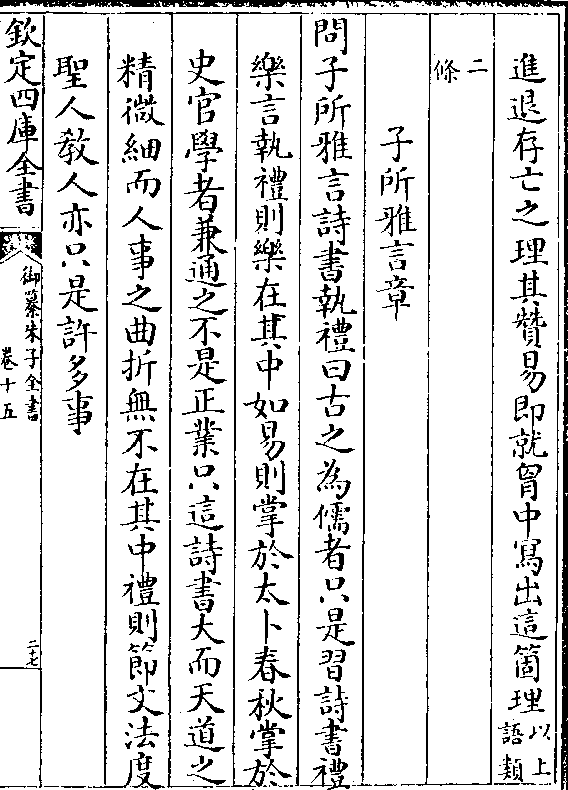 進退存亡之理其贊易即就胷中寫出這箇理以上語類
二條
子所雅言章
問子所雅言詩書執禮曰古之為儒者只是習詩書禮
樂言執禮則樂在其中如易則掌於太卜春秋掌於
史官學者兼通之不是正業只這詩書大而天道之
精微細而人事之曲折無不在其中禮則節文法度
聖人敎人亦只是許多事
欽定四庫全書
御纂朱子全書
卷十五
二十七